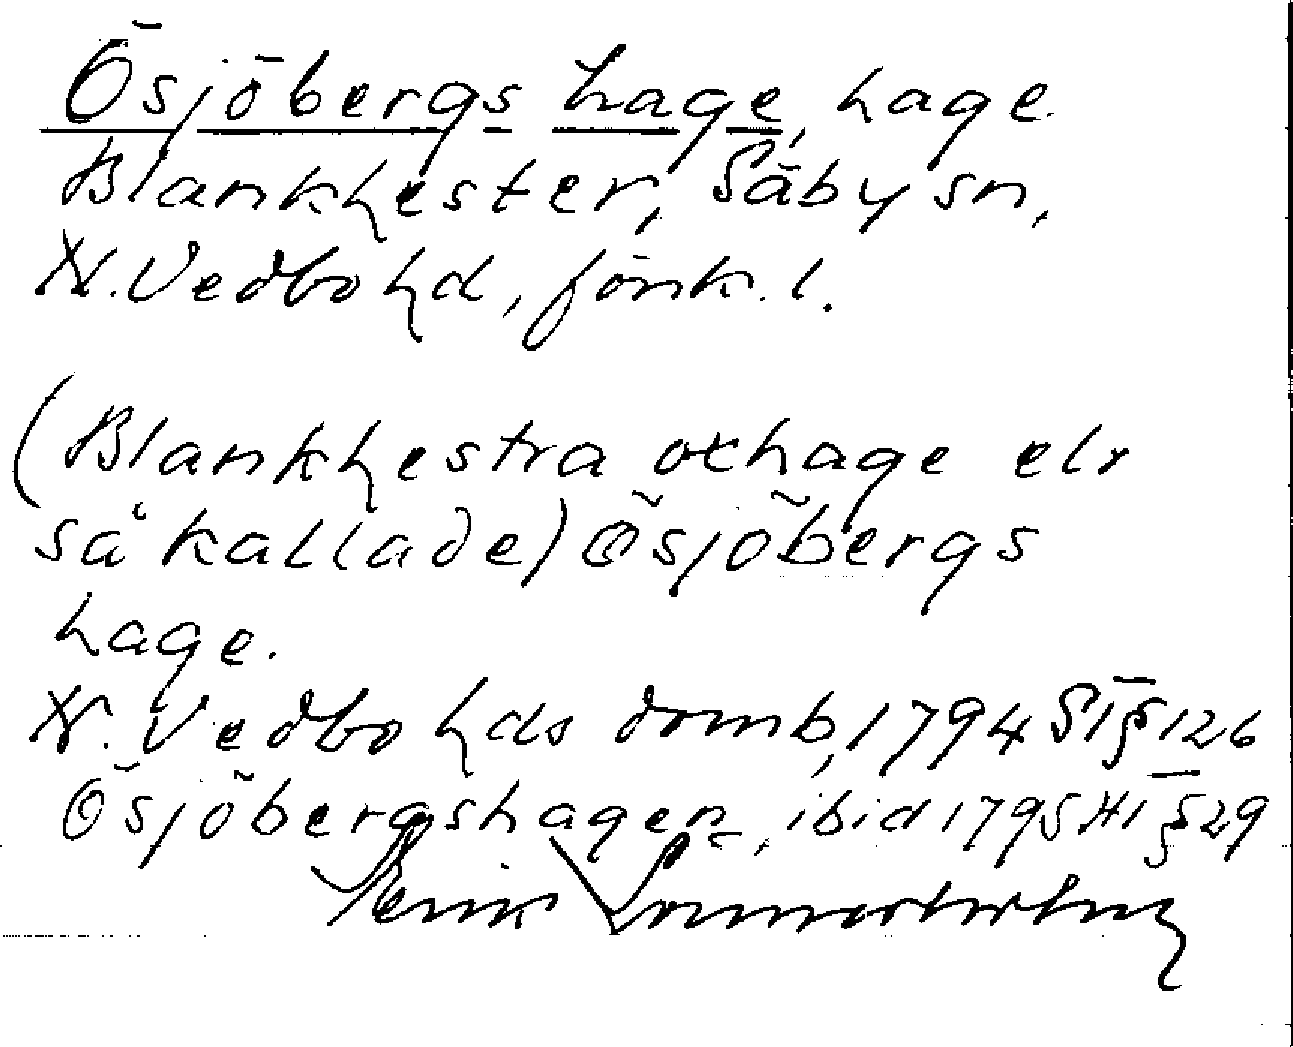 Ösjöbergs hage, hage.
Blankhester, Säby sn,
N. Vedbo hd, Jönk. l.
(Blankhestra oxhage elr
så kallade) Ösjöbergs
hage.
N. Vedbo hds domb, 1794 ST § 126
Ösjöbergshagen, ibid 1795 HT § 29